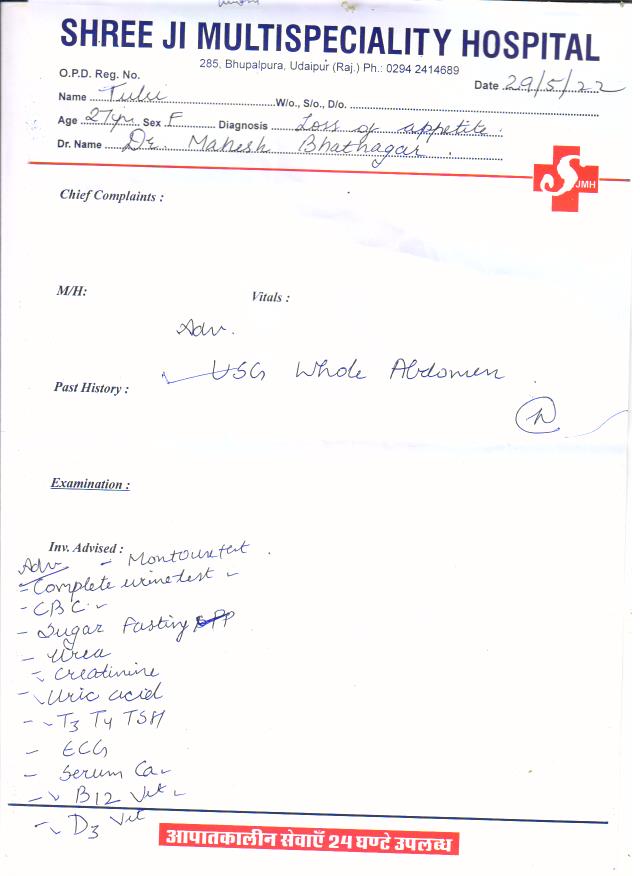 SHREE JI MULTISPECIALITY HOSPITAL
285, Bhupalpura, Udaipur (Raj.) Ph.: 0294 2414689
O.P.D. Reg. No.
Date 29/5/22
Name W/o., S/o., D/o.
Age 27yr Sex F Diagnosis Loss of appetite.
Dr. Name Dr. Mahesh Bhathagar.
SJMH
Chief Complaints :
M/H: Vitals :
Adv.
USG Whole Abdomen
Past History :
Examination :
Inv. Advised :
Adv - Montoux test
- Complete urine test
- CBC
- Sugar Fasting PP
- Urea
- Creatinine
- Uric acid
- T3 T4 TSH
- ECG
- Serum Ca
- B12 Vit
- D3 Vit
आपातकालीन सेवाएँ 24 घण्टे उपलब्ध